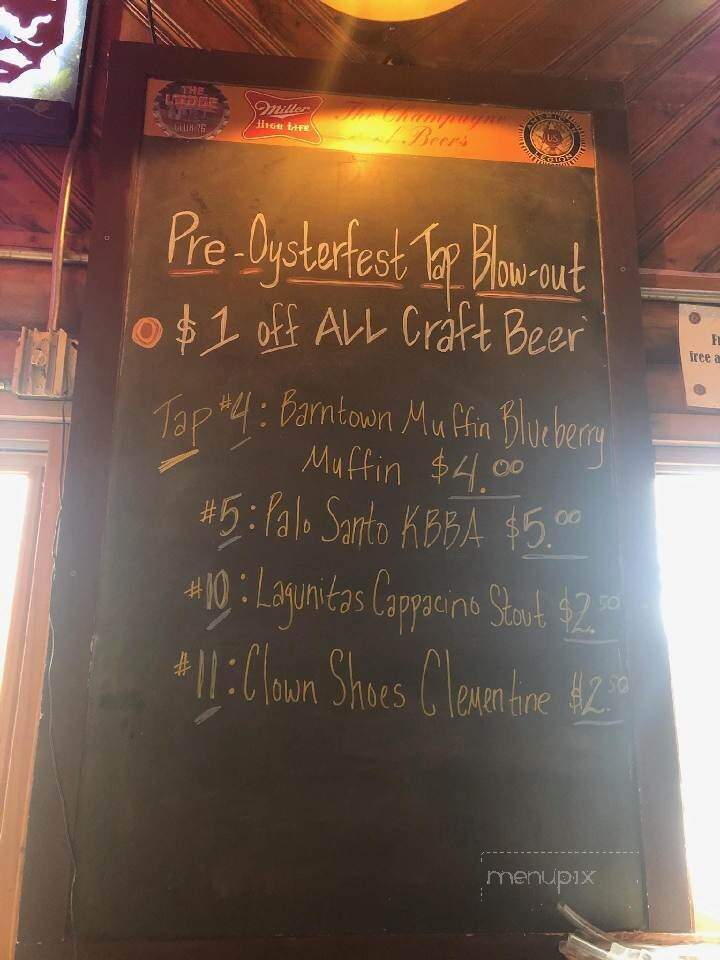 THE LODGE
CLUB 76
Miller
HIGH LIFE
The Champagne
of Beers
AMERICAN
US
LEGION
Pre-Oysterfest Tap Blow-out
$1 off ALL Craft Beer
Tap #4: Barntown Muffin Blueberry
Muffin $4.00
#5: Palo Santo KBBA $5.00
#10: Lagunitas Cappacino Stout $2.50
#11: Clown Shoes Clementine $2.50
free a
menupix